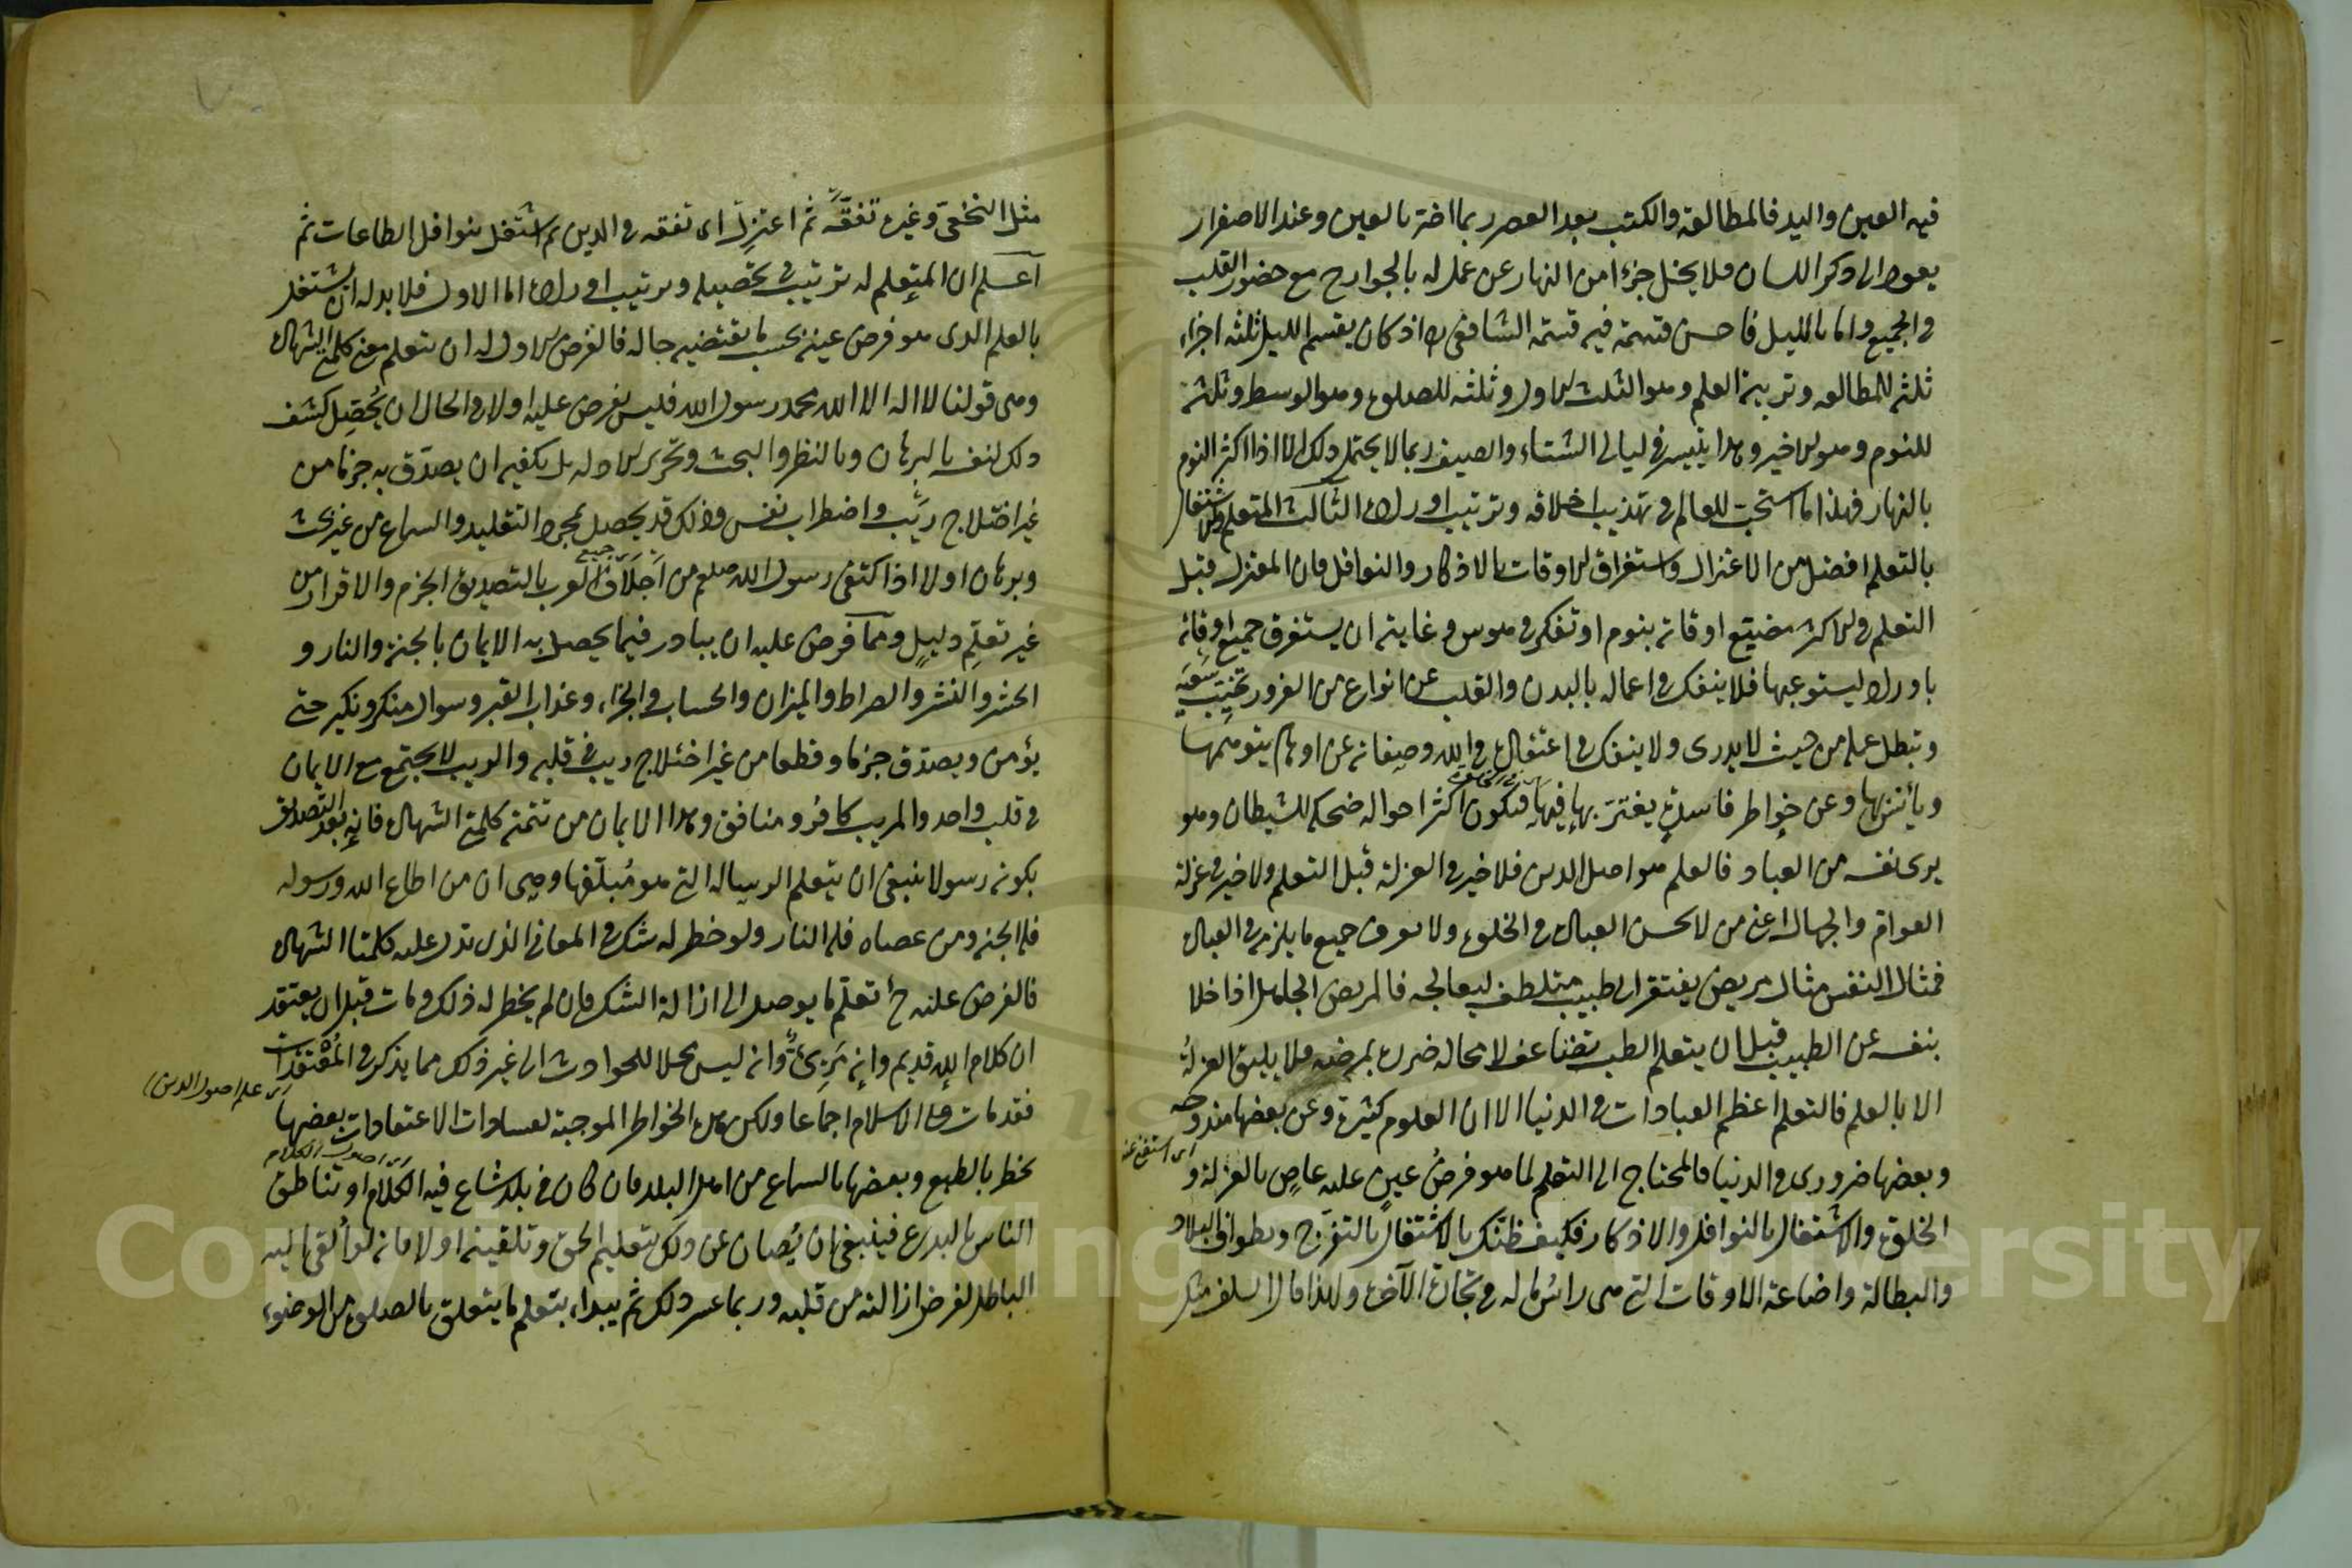 فيه العين واليد فالمطالعة والكتب بعد العصر ربما اضر بالعين وعند الاصفرار
يعود الى ذكر اللسان فلا يخل جزءا من النهار عن عمل له بالجوارح مع حضور القلب
في الجميع واما بالليل فاحسن قسمة فيه قسمة الشافعى اذ كان يقسم الليل ثلثة اجزاء
ثلثه للمطالعه وترتيب العلم وهو الثلث الاول وثلثه للصلوة وهو الوسط وثلثه
للنوم وهو الاخير وهذا يتيسر في ليالى الشتاء والصيف ربما لا يحتمل ذلك الا اذا اكثر النوم
بالنهار فهذا ما استحب للعالم في تهذيب اخلاقه وترتيب اوراده الثالث المتعلم والاشتغال
بالتعلم افضل من الاعتزال واستغراق الاوقات بالاذكار والنوافل فان المعتزل قبل
التعلم في الاكثر مضيع اوقاته بنوم او تفكر في هوس وغايته ان يستغرق جميع اوقاته
باوراد يستوعبها فلا ينفك في اعماله بالبدن والقلب عن انواع من الغرور تخيب سعيه
وتبطل عمله من حيث لا يدرى ولا ينفك في اعتقاده في الله وصفاته عن اوهام يتوهمها
ويأنس بها وعن خواطر فاسدة يعتريه فيها فتكون اكثر احواله ضحكة للشيطان وهو
يرى نفسه من العباد فالعلم هو اصل الدين فلا خير في العزلة قبل التعلم ولا خير في عزلة
العوام والجهال اعنى من لا يحسن العبادة في الخلوة ولا يعرف جميع ما يلزمه في العبادة
فمثال النفس مثال مريض يفتقر الى طبيب متلطف ليعالجه فالمريض الجاهل اذا خلا
بنفسه عن الطبيب قبل ان يتعلم الطب تضاعف لا محالة ضرره بمرضه فلا يليق العزلة
الا بالعلم فالتعلم اعظم العبادات في الدنيا الا ان العلوم كثيرة وعن بعضها مندوحة
اى استغنى عنه
وبعضها ضرورى في الدنيا فالمحتاج الى التعلم لما هو فرض عين عليه عاص بالعزلة و
الخلوة والاشتغال بالنوافل والاذكار فكيف ظنك بالاشتغال بالتفرج وبطواف البلاد
والبطالة واضاعة الاوقات التى هى رأس ماله في تجارة الآخرة ولهذا قال السلف مثل
مثل النخعى وغيره تفقه ثم اعتزل اى تفقه في الدين ثم اشتغل بنوافل الطاعات ثم
اعلم ان المتعلم له ترتيب في تحصيله وترتيب اوراده اما الاول فلا بد له ان يشتغل
بالعلم الذى هو فرض عينه بحسب ما يقتضيه حاله فالفرض الاول له ان يتعلم معنى كلمتى الشهادة
وهى قولنا لا اله الا الله محمد رسول الله فليس يفرض عليه اولا في الحال ان يحصل كشف
ذلك لنفسه بالبرهان وبالنظر والبحث وتحرير الادلة بل يكفيه ان يصدق به جزما من
غير اختلاج ريب واضطراب نفس وذلك قد يحصل بمجرد التقليد والسماع من غير بحث
وبرهان اولا اذ اكتفى رسول الله صلعم من اجلاف جميع العرب بالتصديق الجزم والاقرار من
غير تعلم دليل ومما فرض عليه ان يبادر فيما يحصل به الايمان بالجنة والنار و
الحشر والنشر والصراط والميزان والحساب والجزاء وعذاب القبر وسوال منكر ونكير حتى
يؤمن ويصدق جزما وقطعا من غير اختلاج ريب في قلبه والريب لا يجتمع مع الايمان
في قلب واحد والمريب كافر ومنافق وهذا الايمان من تتمة كلمتى الشهادة فانه بعد التصديق
بكونه رسولا ينبغى ان يتعلم الرسالة التى هو مبلغها وهى ان من اطاع الله ورسوله
فله الجنة ومن عصاه فله النار ولو خطر له شك في المعانى الذى تدل عليه كلمتا الشهادة
فالفرض عليه ح تعلم ما يوصل الى ازالة الشك فان لم يخطر له ذلك ومات قبل ان يعتقد
ان كلام الله قديم وانه مرئى وانه ليس محلا للحوادث الى غير ذلك مما يذكر في المعتقدات
اى علم اصول الدين
فقد مات على الاسلام اجماعا ولكن هذه الخواطر الموجبة لفسادات الاعتقادات بعضها
يخطر بالطبع وبعضها بالسماع من اهل البلد فان كان في بلد شاع فيه الكلام او تناطق
الناس بالبدع فينبغى ان يصان عن ذلك بتعليم الحق وتلقينه اولا فانه لو القى اليه
الباطل لفرض ازالته من قلبه وربما عسر ذلك ثم يبدأ بتعلم ما يتعلق بالصلوة من الوضوء
Copyright © King Saud University